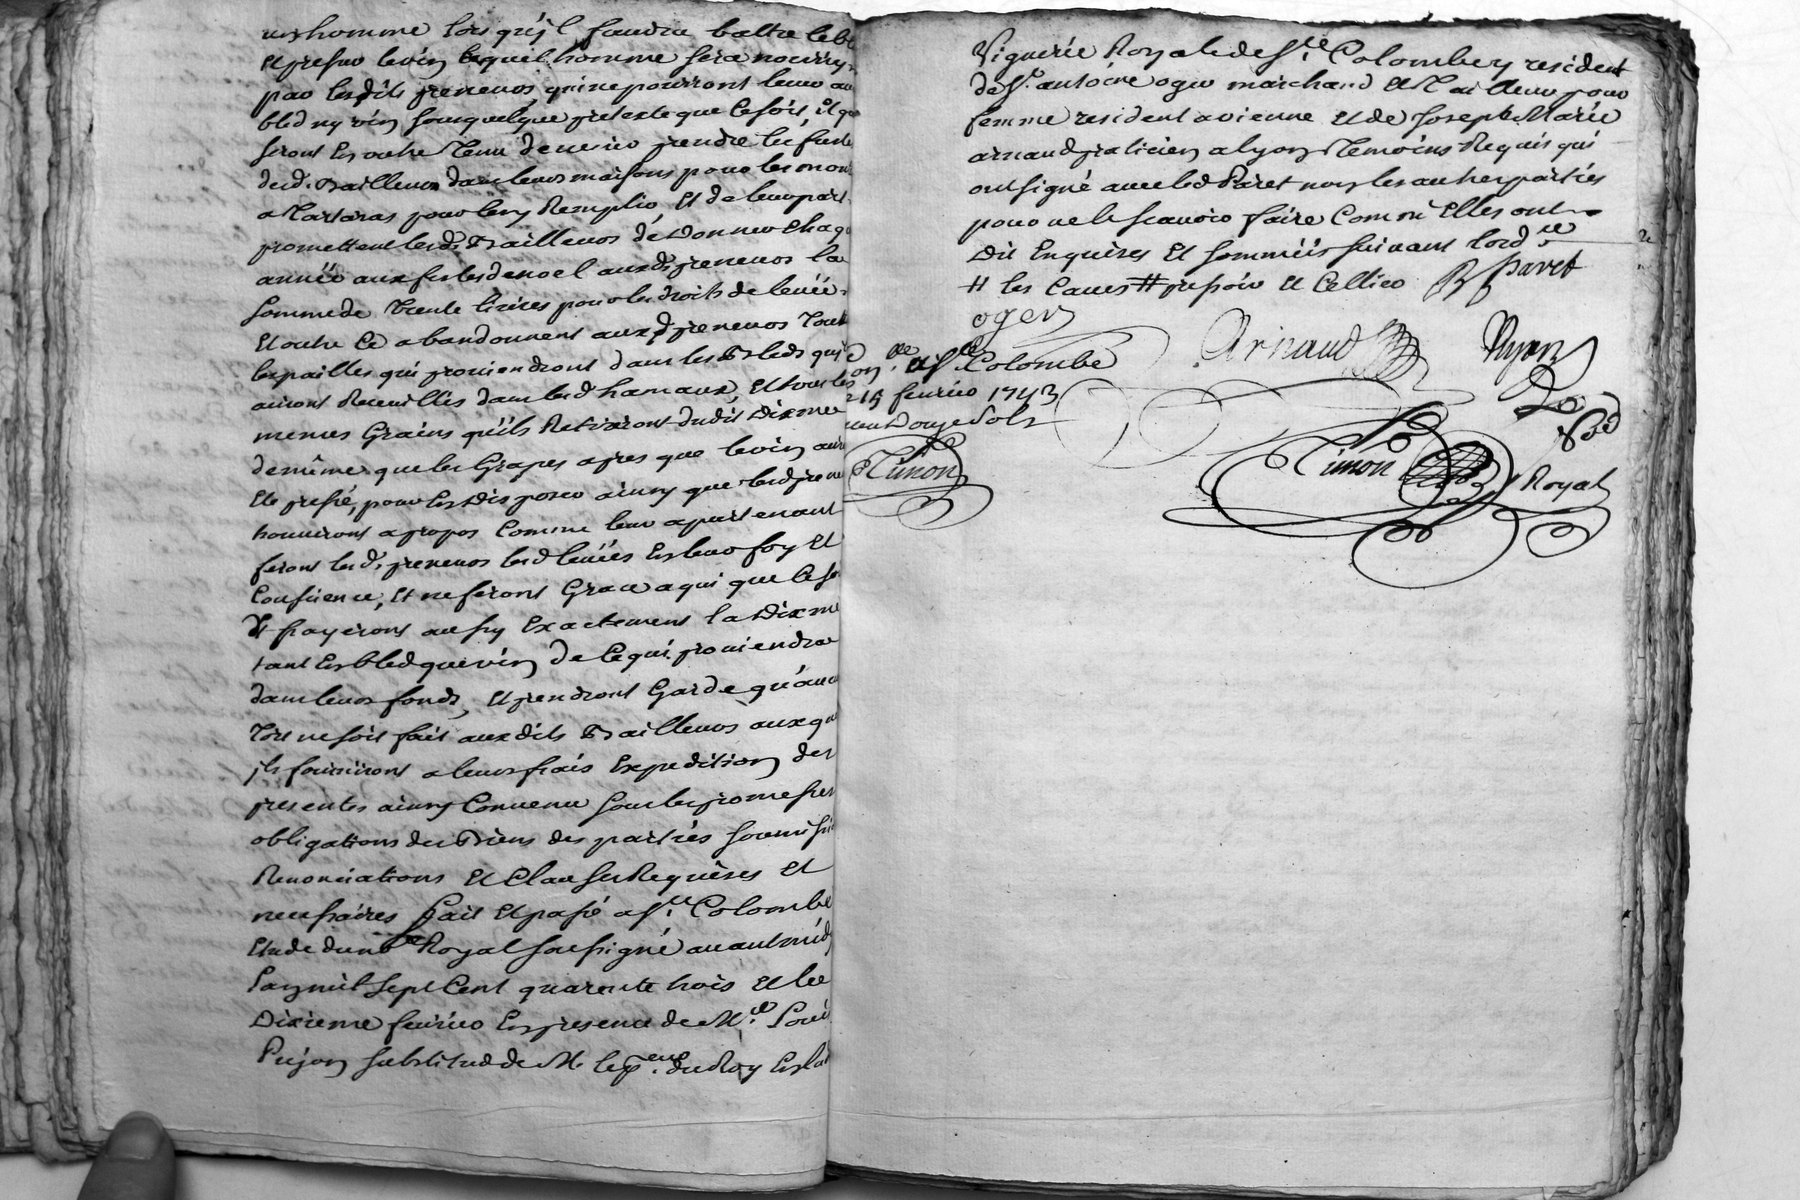 un homme lors qu'il faudra battre le bl
et presser le vin lequel homme sera nourry
par lesdits preneurs, qui ne pourront leur au
bled ny vin sous quelque pretexte que ce soit, et qu
seront en outre tenu de venir prendre les fusts
desd. Bailleurs dans leurs maisons pour les mon
a Tartaras pour les y Remplir, et de leur part
promettent lesd. Bailleurs de donner chaqu
année aux festes de noel auxd. preneurs la
somme de trente livres pour les droits de levée
et outre ce abandonnent auxd preneurs tout
les pailles qui proviendront dans les Bleds qui
auront Recueillis dans led hameaux, et tous les
memes Grains qu'ils Retireront dudit dixme
de même que les Grapes apres que le vin aura
été pressé, pour en disposer ainsy que lesd preneu
trouveront a propos comme leur apartenant
feront lesd. preneurs lesd levées en leur foy et
conscience, et ne feront Grace a qui que ce so
et payeront aussy exactement la dixme
tant en bled que vin de ce qui proviendra
dans leurs fonds, et prendront Garde qu'aucu
tort ne soit fait auxdits Bailleurs auxqu
ils fourniront a leurs frais expedition des
presentes ainsy convenu sous les promesses
obligations des Biens des parties soumissi
Renonciations et clauses Requises et
necessaires fait et passé a Ste Colombe
etude du nore Royal soussigné avant midy
l'an mil sept cent quarente trois et le
dixieme fevrier en presence de Mre Louis
Pujon substitud de M. le pr. du Roy en la
Viguerie Royale de Ste Colombe y resident
de Sr. antoine oger marchand et Tailleur pour
femme resident a vienne et de Joseph Marie
arnaud praticien a lyon temoins Requis qui
ont signé avec led Paret non les autres parties
pour ne le scavoir faire comm'elles ont
dit enquises et sommées suivant lord.ce
# les caves # pressoir et cellier
Paret
oger
Arnaud
on. lle a Ste Colombe
e 15 fevrier 1743
douze sols
Timon
Timon
Royal